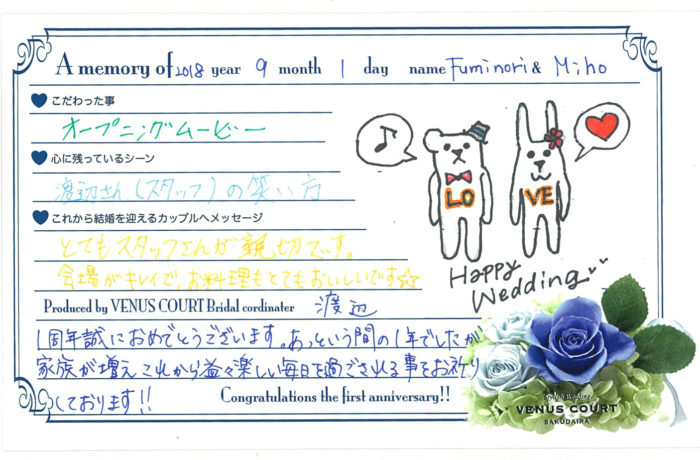 A memory of 2018 year 9 month 1 day name Fuminori & Miho
こだわった事
オープニングムービー
心に残っているシーン
渡辺さん(スタッフ)の笑い方
これから結婚を迎えるカップルへメッセージ
とてもスタッフさんが親切です。
会場がキレイで、お料理もとてもおいしいです☆
LO VE
Happy Wedding
Produced by VENUS COURT Bridal cordinater 渡辺
1周年誠におめでとうございます。あっという間の1年でしたが
家族が増えこれから益々楽しい毎日を過ごされる事をお祈り
しております!!
Congratulations the first anniversary!!
VENUS COURT
SAKUDAIRA